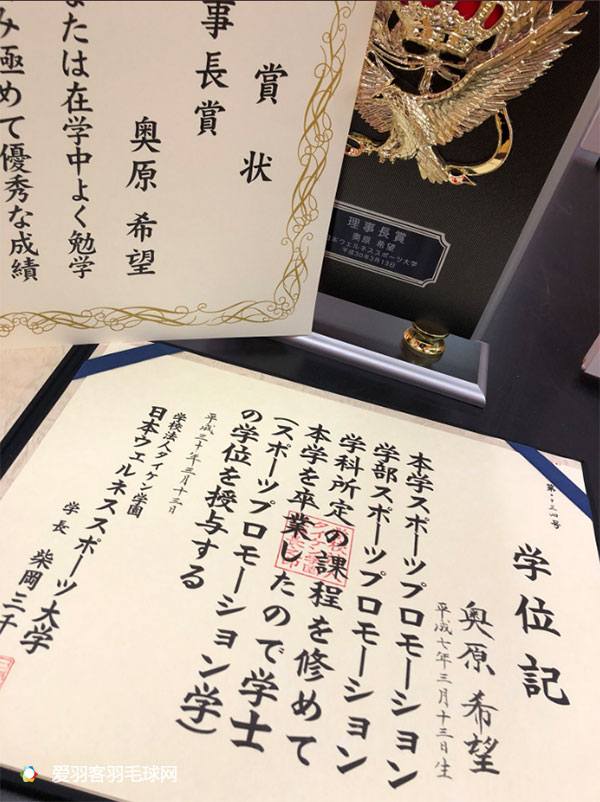 賞状
事長賞
奥原 希望
または在学中よく勉学
み極めて優秀な成績
理事長賞
奥原 希望
日本ウェルネススポーツ大学
平成30年3月13日
学位記
奥原 希望
平成七年三月十三日生
本学スポーツプロモーション
学部スポーツプロモーション
学科所定の課程を修めて
本学を卒業したので学士
(スポーツプロモーション学)
の学位を授与する
平成三十年三月十三日
学校法人タイケン学園
日本ウェルネススポーツ大学
学長 柴岡三千
爱羽客羽毛球网